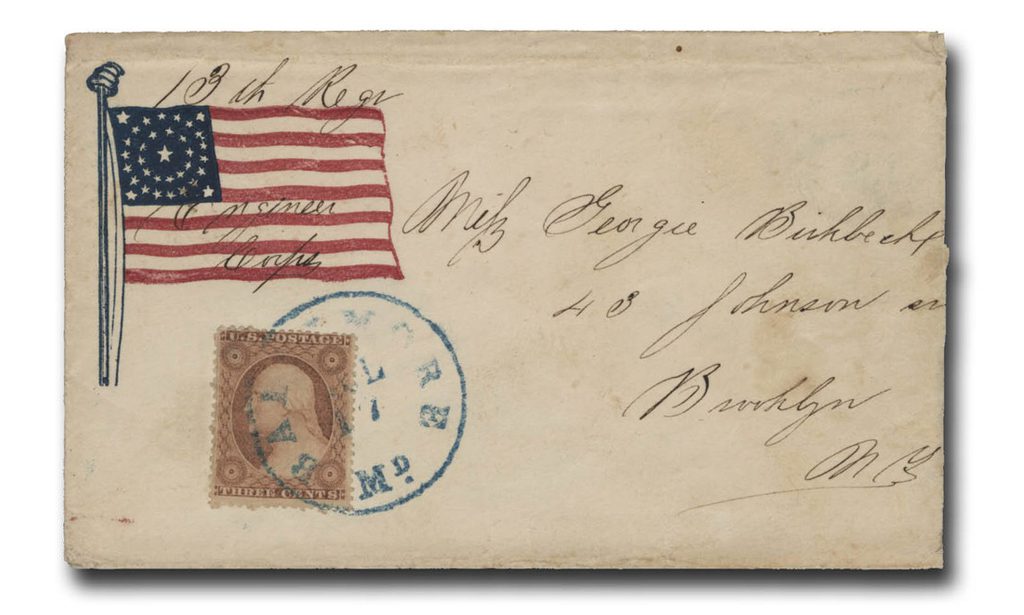 13th Regr
Engineer
Corps
Miss Georgie Birkbeck
43 Johnson
Brooklyn
NY
U.S. POSTAGE
THREE CENTS
BALTIMORE
Md.